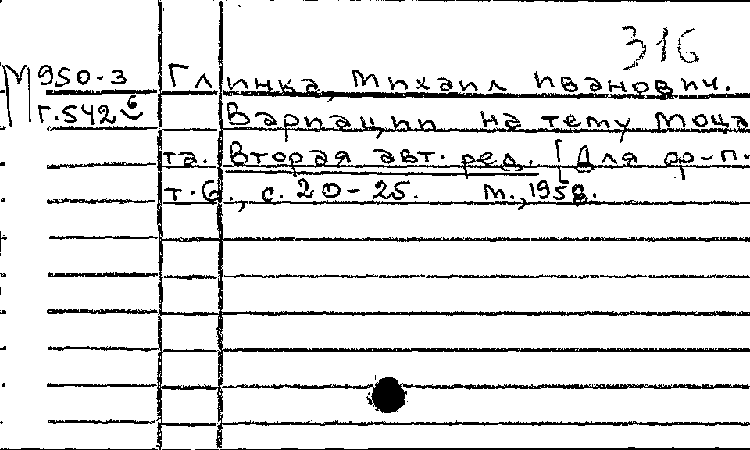 316
М 950-3 Глинка, Михаил Иванович.
Г.542 б Вариации на тему Моца
та. Вторая авт. ред. [Для ф-п.
т.6., с. 20-25. М., 1958.